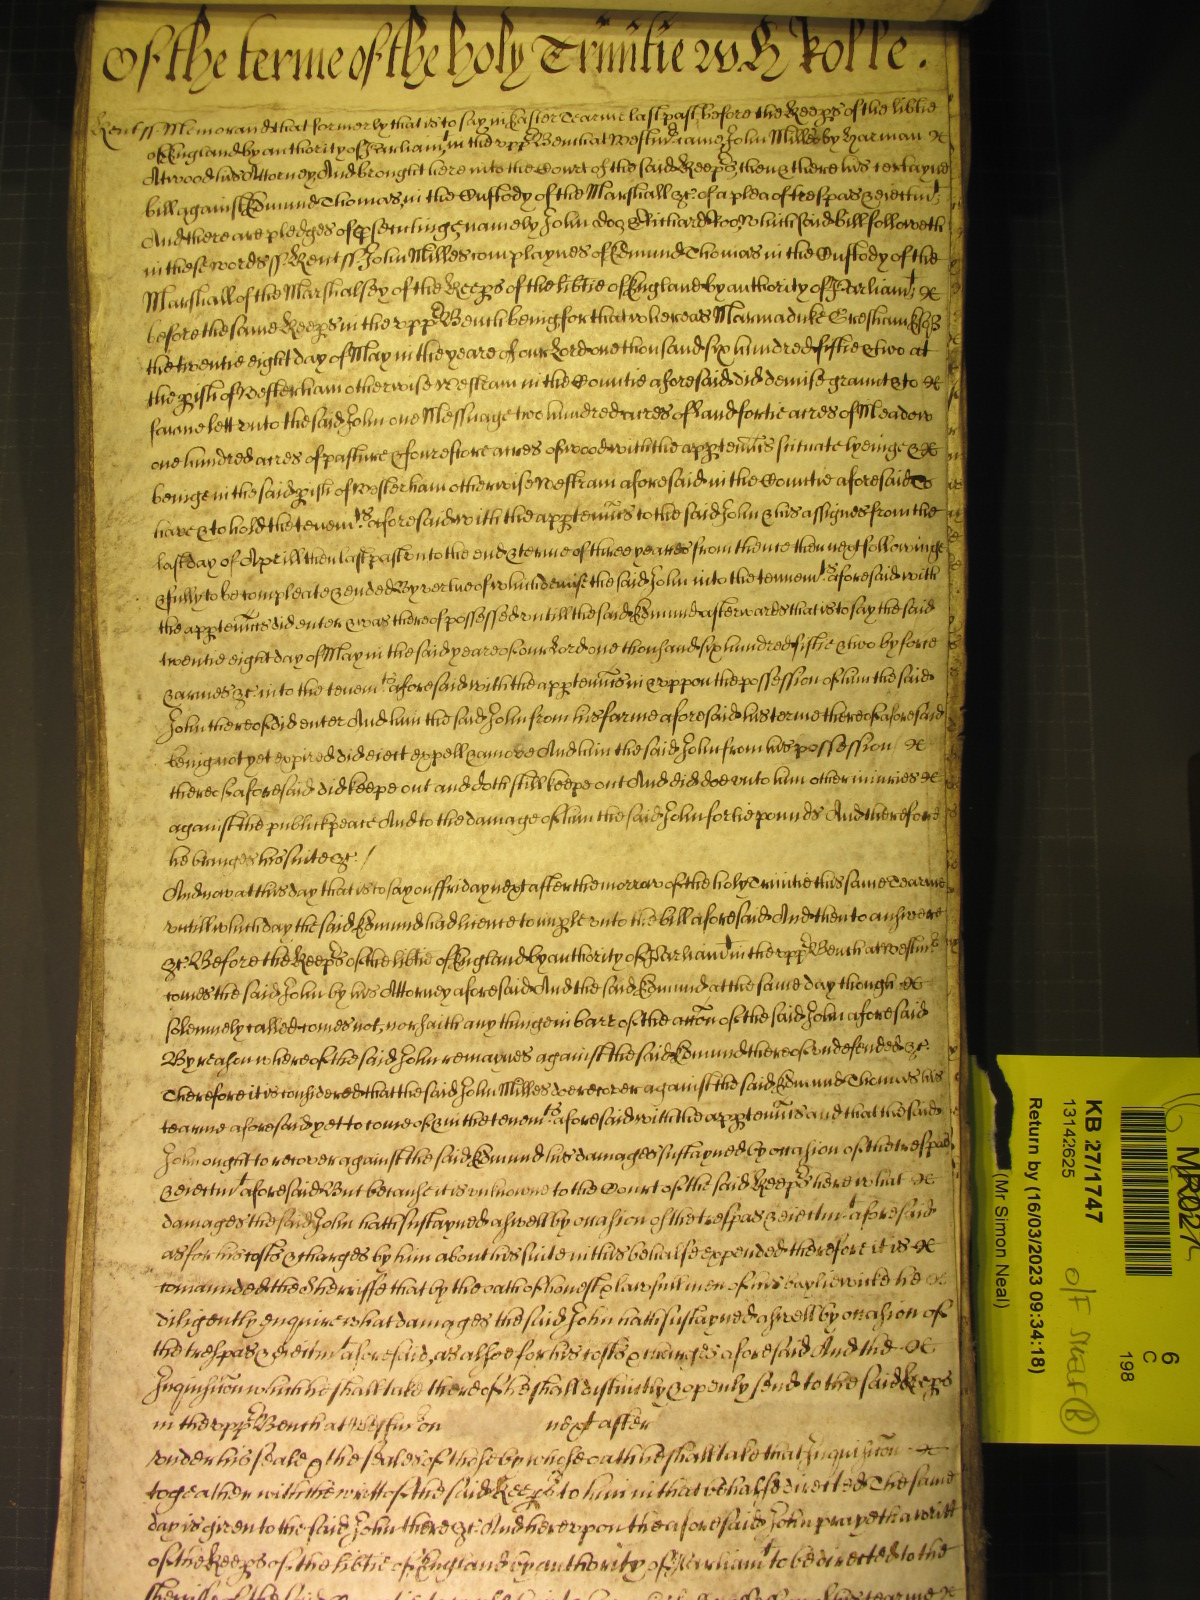 Of the terme of the holy Trinitie w th Rolle.
Kent ss Memorand that formerly that is to say in Easter Tearme last past before the Keeps of the lib'tie
of England by authority of Parliam't in the upp Bench at Westm' came John Milles by Harman
Atwood his Attorney And brought here into the Court of the said Keeps then & there his certayne
bill against Edmund Thomas in the Custody of the Marshall &c. of a plea of trespas & eiectm't
And there are pledges of psecuting namely John Doo & Richard Roo, which said bill followeth
in these words ss Kent ss John Milles complaynes of Edmund Thomas in the Custody of the
Marshall of the Marshalsey of the Keeps of the lib'tie of England by authority of Parliam't
before the same Keeps in the upp Bench being for that whereas Marmaduke Gresham
the twentie eight day of May in the yeare of our Lord one thousand six hundred fiftie & two at
the pish of Westerham otherwise Westram in the Countie aforesaid did demise graunt & to
farme lett unto the said John one Messuage two hundred acres of Land fortie acres of Meadow
one hundred acres of pasture & fourescore acres of wood with the apptenncs scituate lyeinge &
beinge in the said pish of Westerham otherwise Westram aforesaid in the Countie aforesaid To
have & to hold the tenem'ts aforesaid with the apptenncs to the said John & his assignes from the
last day of Aprill then last past unto the end & terme of three yeares from thence then next followinge
& fully to be compleate & ended By vertue of which demise the said John into the tennem'ts aforesaid with
the apptenncs did enter & was thereof possessed untill the said Edmund afterwards that is to say the said
twentie eight day of May in the said yeare of our Lord one thousand six hundred fiftie & two by force
& armes &c. into the tenem'ts aforesaid with the apptenncs in & uppon the possession of him the said
John thereof did enter And him the said John from his farme aforesaid his terme thereof aforesaid
being not yet expired did eiect expell & amove And him the said John from his possession
thereof aforesaid did keepe out and doth still keepe out And did doe unto him other iniuries
against the publick peace And to the damage of him the said John fortie pounds And therefore
he bringes his suite &c. /
And now at this day that is to say on ffriday next after the morrow of the holy Trinitie this same Tearme
untill which day the said Edmund had licence to imple unto the bill aforesaid And then to answere
&c. Before the Keeps of the lib'tie of England by authority of Parliam't in the upp Bench at Westm'
comes the said John by his Attorney aforesaid And the said Edmund at the same day though
solemnely called comes not, nor saith any thinge in barr of the accon of the said John aforesaid
By reason whereof the said John remaynes against the said Edmund thereof undefended &c.
Therefore it is considered that the said John Milles doe recover against the said Edmund Thomas his
tearme aforesaid yet to come of & in the tenem'ts aforesaid with the apptenncs and that the said
John ought to recover against the said Edmund his damages sustayned by occasion of the trespas
& eiectm't aforesaid But because it is unknowne to the Court of the said Keeps here what
damages the said John hath sustayned aswell by occasion of the trespas & eiectm't aforesaid
as for his costs & charges by him about his suite in this behalfe expended therefore it is
comannded the Sherriffe that by the oath of honest & lawfull men of his bayliewicke he
diligently enquire what damages the said John hath sustayned aswell by occasion of
the trespas & eiectm't aforesaid, as alsoe for his costs & charges aforesaid And the
Inquisicon which he shall take thereof he shall distinctly & openly send to the said Keeps
in the upp Bench at Westm' on next after
under his seale & the seales of those by whose oath he shall take that Inquisicon
togeather with the writt of the said Keeps to him in that behalfe directed The same
day is given to the said John there &c. And hereupon the aforesaid John prayeth a writt
of the Keeps of the lib'tie of England by authority of Parliam't to be directed to the
KB 27/1747
13142625
Return by (16/03/2023 09:34:18)
(Mr Simon Neal)
6
C
198